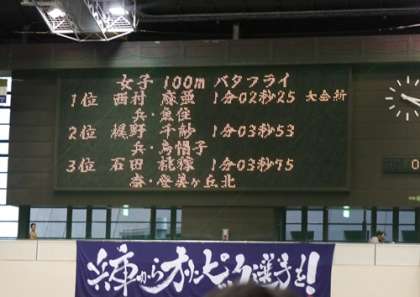 女子 100m バタフライ
1位 西村 麻亜 1分02秒25 大会新
兵・魚住
2位 梶野 千紗 1分03秒53
兵・烏帽子
3位 石田 桃稼 1分03秒75
奈・登美ヶ丘北
兵庫からオリンピック選手を!